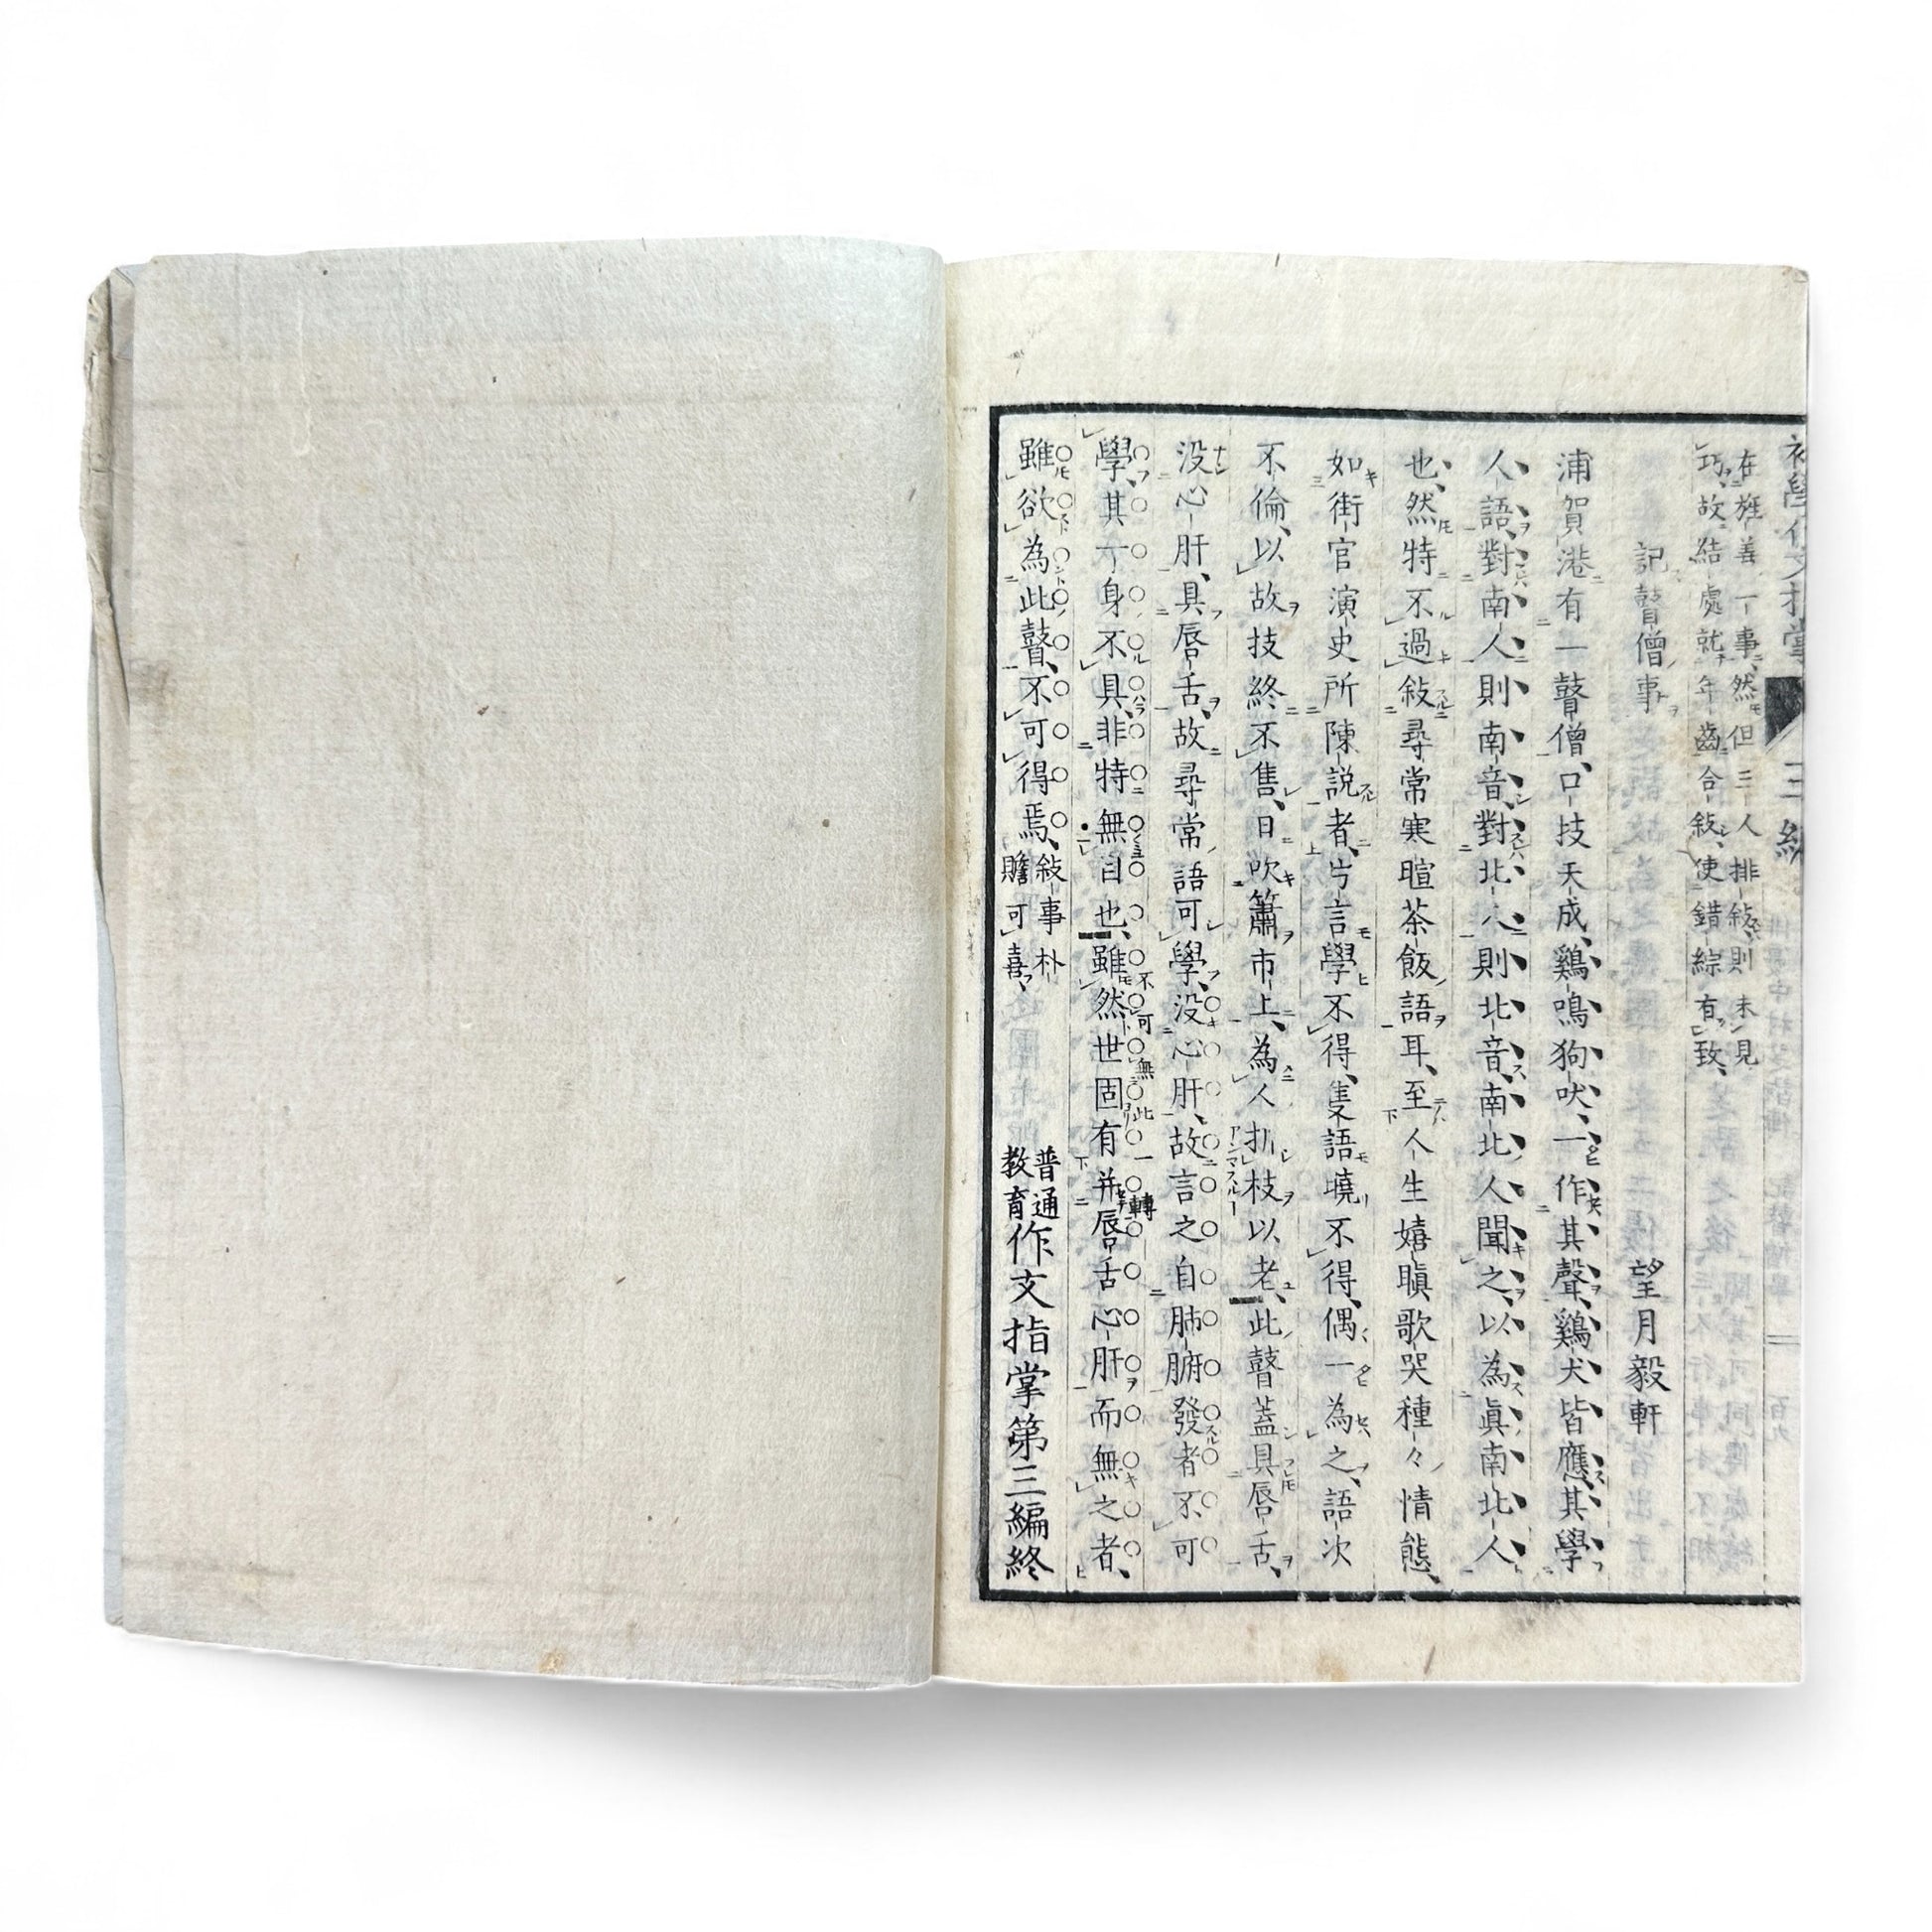 在旌善一事、然但三人排敍、則未見
巧、故結處就年齒合敍、使錯綜有致、
記瞽僧事
望月毅軒
浦賀港有一瞽僧、口技天成、鷄鳴狗吠、一作其聲、鷄犬皆應、其學
人語、對南人則南音、對北人則北音、南北人聞之、以為眞南北人
也、然特不過敍尋常寒暄茶飯語耳、至人生嬉瞋歌哭種々情態、
如街官演史所陳説者、片言學不得、隻語曉不得、偶一為之、語次
不倫、以故技終不售、日吹簫市上、為人扒枝以老、此瞽蓋具唇舌、
没心肝、具唇舌、故尋常語可學、没心肝、故言之自肺腑發者不可
學、其一身不具、非特無目也、雖然世固有并唇舌心肝而無之者、
不可無此一轉
雖欲為此瞽、不可得焉、
敍事朴
贍可喜、
普通
教育
作文指掌第三編終